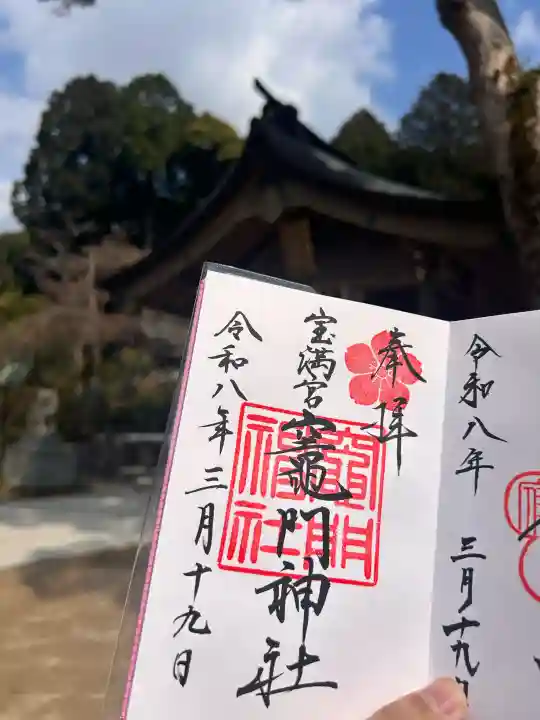 令和八年
三月十九日
奉拝
宝満宮
竈門神社
竈門神社
令和八年三月十九日